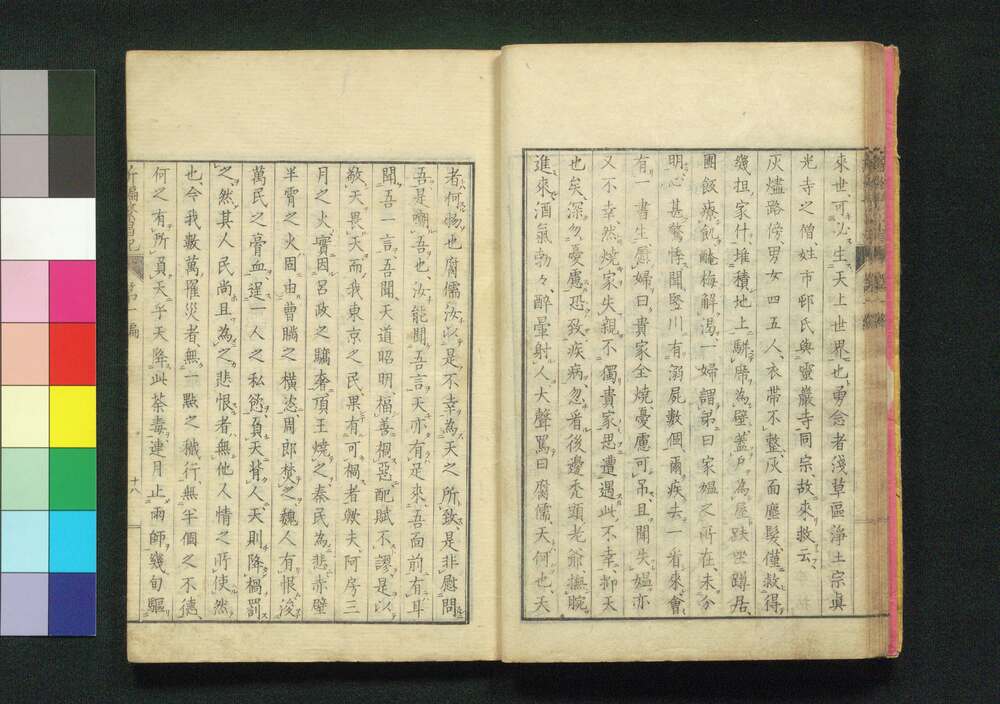 來世可必生天上世界也勇念者淺草區淨土宗眞
光寺之僧姓市邨氏與靈巖寺同宗故來救云
灰燼路傍男女四五人衣帶不整灰面塵髮僅救得
幾担家什堆積地上駢席為壁蓋戶為屋趺坐蹲居
團飯療飢鹽梅解渴一婦謂弟曰家媼之所在未分
明心甚驚悸聞竪川有溺屍數個爾疾去一看來會
有一書生慰婦曰貴家全燒憂慮可吊且聞失媼亦
又不幸然燒家失親不獨貴家思遭遇此不幸抑天
也矣深勿憂慮恐致疾病忽看後邊禿頭老爺撫腕
進來酒氣勃々醉暈射人大聲罵曰腐儒天何也天
者何物也腐儒汝以是不幸為天之所致是非慰問
吾是嘲吾也汝能聞吾言天亦有足來吾面前有耳
聞吾一言吾聞天道昭明福善禍惡配賦不謬是以
敬天畏天而我東京之民果有可禍者歟夫阿房三
月之火實因呂政之驕奢項王燒之秦民為悲赤壁
半霄之火固由曹瞞之橫恣周郎焚之魏人有恨浚
萬民之膏血逞一人之私慾負天背人天則降禍罰
之然其人民尚且為之悲恨者無他人情之所使然
也今我數萬罹災者無一點之穢行無半個之不德
何之有所負天乎天降此荼毒連月止雨師幾旬驅
新編
第一編
十八